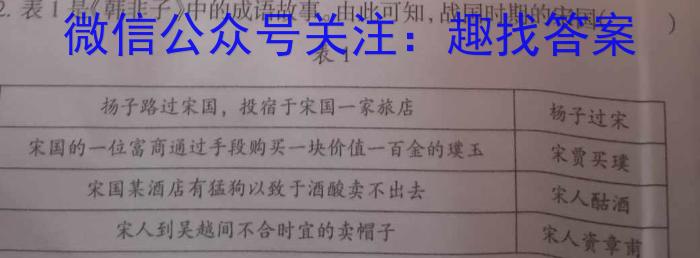 2. 表1是《韩非子》中的成语故事。由此可知,战国时期的宋国 )
微信公众号关注:趣找答案
表1
扬子路过宋国,投宿于宋国一家旅店 杨子过宋
宋国的一位富商通过手段购买一块价值一百金的璞玉 宋贾买璞
宋国某酒店有猛狗以致于酒酸卖不出去 宋人酤酒
宋人到吴越间不合时宜的卖帽子 宋人资章甫